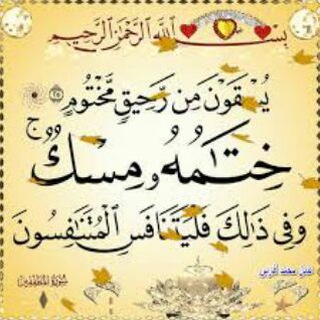 بسم الله الرحمن الرحيم
يُسْقَوْنَ مِن رَّحِيقٍ مَّخْتُومٍ ٢٥
خِتَامُهُ مِسْكٌ ج
وَفِى ذَٰلِكَ فَلْيَتَنَافَسِ الْمُتَنَافِسُونَ
سورة المطففين